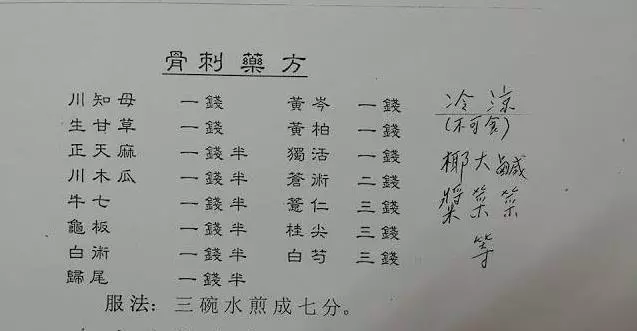 骨刺藥方
川知母 一錢 黃岑 一錢
生甘草 一錢 黃柏 一錢
正天麻 一錢半 獨活 一錢
川木瓜 一錢半 蒼術 二錢
牛七 一錢半 薏仁 三錢
龜板 一錢半 桂尖 三錢
白術 一錢半 白芍 三錢
歸尾 一錢半
服法：三碗水煎成七分。
冷涼
(不可食)
椰漿
大菜
鹹菜
等